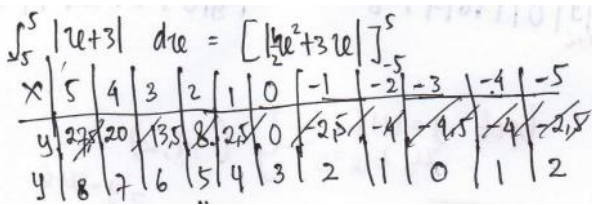 ∫₅⁵ |x+3| dx = [|½x²+3x|]₋₅⁵
x | 5 | 4 | 3 | 2 | 1 | 0 | -1 | -2 | -3 | -4 | -5
y | 27,5 | 20 | 13,5 | 8 | 2,5 | 0 | -2,5 | -4 | -4,5 | -4 | -2,5
y | 8 | 7 | 6 | 5 | 4 | 3 | 2 | 1 | 0 | 1 | 2